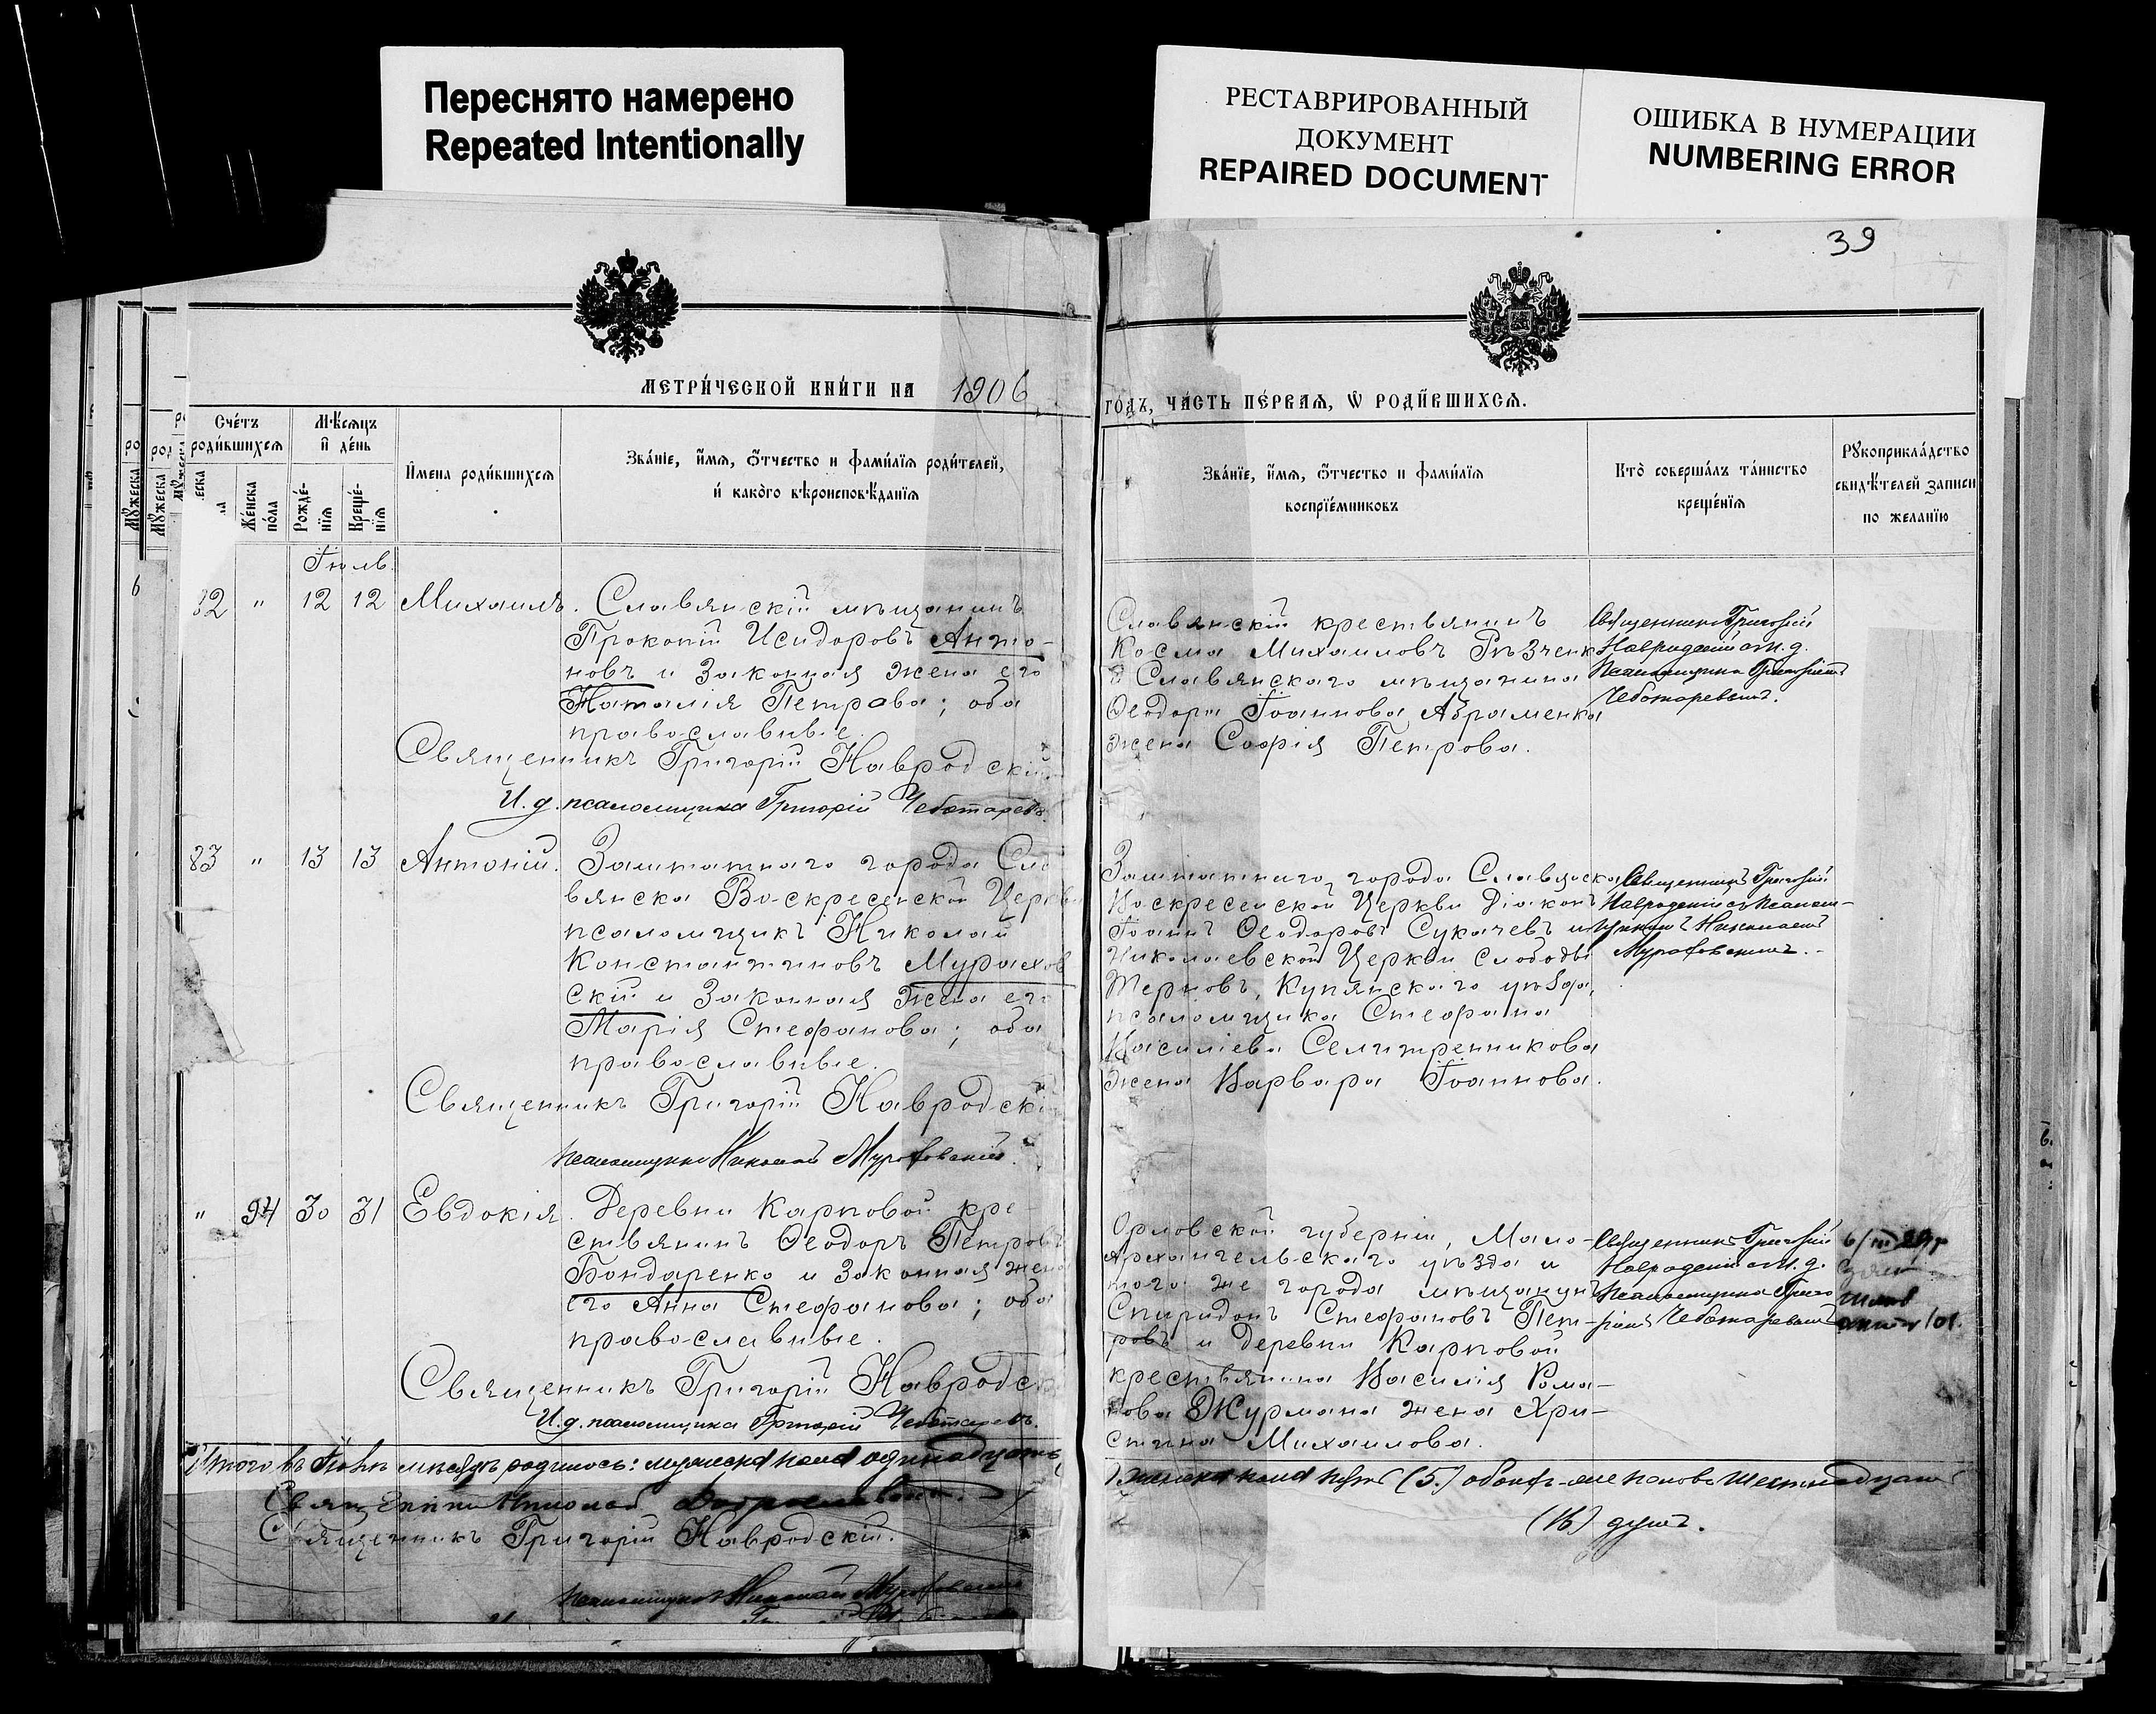 Переснято намерено
Repeated Intentionally
РЕСТАВРИРОВАННЫЙ
ДОКУМЕНТ
REPAIRED DOCUMENT
ОШИБКА В НУМЕРАЦИИ
NUMBERING ERROR
39
МЕТРИ́ЧЕСКОЙ КНИ́ГИ НА 1906
ГО́ДЪ, ЧА́СТЬ ПЕ́РВАЯ, Ѡ РОДИ́ВШИХСЯ.
Сче́тъ
роди́вшихся
Же́нска
по́ла
Мѣ́сяцъ
и де́нь
Рожде́-
нїя
Креще́-
нїя
И́мена роди́вшихся
Зва́нїе, и́мя, о́тчество и фами́лїя роди́телей,
и како́го вѣроисповѣ́данїя
Зва́нїе, и́мя, о́тчество и фами́лїя
воспрїе́мниковъ
Кто̀ соверша́лъ та́инство
креще́нїя
Рꙋкоприкла́дство
свидѣ́телей записи
по жела́нїю
Іюль.
82 " 12 12 Михаилъ. Славянскій мѣщанинъ
Прокопій Исидоровъ Анто-
новъ и законная жена его
Наталія Петрова; оба
православные.
Священникъ Григорій Навродскій
И. д. псаломщика Григорій Чеботаревъ.
Славянскій крестьянинъ
Косма Михаиловъ Рѣзченк
и Славянскаго мѣщанина
Ѳеодора Іоаннова Абраменка
жена Софія Петрова.
Священникъ Григорій
Навродскій с И. д.
псаломщика Григоріемъ
Чеботаревымъ.
83 " 13 13 Антоній. Заштатнаго города Сла
вянска Воскресенской Церкви
псаломщикъ Николай
Константиновъ Мурахов
скій и законная жена его
Марія Стефанова; оба
православные.
Священникъ Григорій Навродскій
Псаломщикъ Николай Мураховскій.
Заштатнаго города Славянска
Воскресенской Церкви Діаконъ
Іоаннъ Ѳеодоровъ Сукачевъ и
Николаевской Церкви слободы
Терновъ, Купянскаго уѣзда,
псаломщика Стефана
Василіева Селитренникова
жена Варвара Іоаннова.
Священникъ Григорій
Навродскій съ псалом-
щикомъ Николаемъ
Мураховскимъ.
" 94 30 31 Евдокія. Деревни Карповой кре-
стьянинъ Ѳеодоръ Петровъ
Бондаренко и законная жена
его Анна Стефанова; оба
православные.
Священникъ Григорій Навродск
И. д. псаломщика Григорій Чеботаревъ.
Орловской губерніи, Мало-
архангельскаго уѣзда и
того же города мѣщанинъ
Спиридонъ Стефановъ Пет-
ровъ и деревни Карповой
крестьянина Василія Рома-
нова Журмана жена Хри-
стина Михаилова.
Священникъ Григорій
Навродскій с И. д.
псаломщика Григо
ріемъ Чеботаревымъ
Итого въ Іюлѣ мѣсяцѣ родилось: мужеска пола одинадцать,
женска пола пять (5.) обоихъ-же половъ шестнадцать
(16) душъ.
Священникъ Николай
Священникъ Григорій Навродскій.
Псаломщикъ Николай Мураховскій